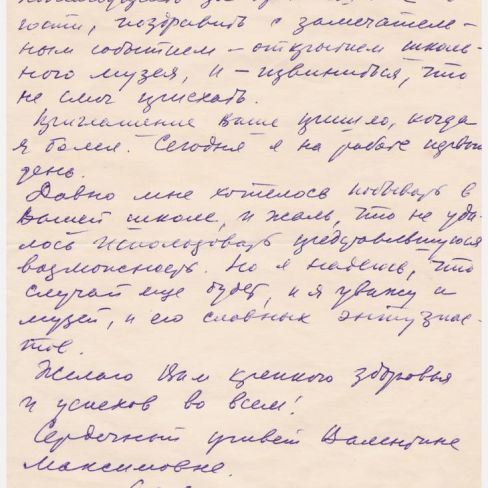 гости, поздравить с замечатель-
ным событием – открытием школь-
ного музея, и – извиниться, что
не смог приехать.
Приглашение Ваше пришло, когда
я болел. Сегодня я на работе первый
день.
Давно мне хотелось побывать в
Вашей школе, и жаль, что не уда-
лось использовать представившуюся
возможность. Но я надеюсь, что
случай еще будет, и я увижу и
музей, и его славных энтузиас-
тов.
Желаю Вам крепкого здоровья
и успехов во всем!
Сердечный привет Валентине
Максимовне.